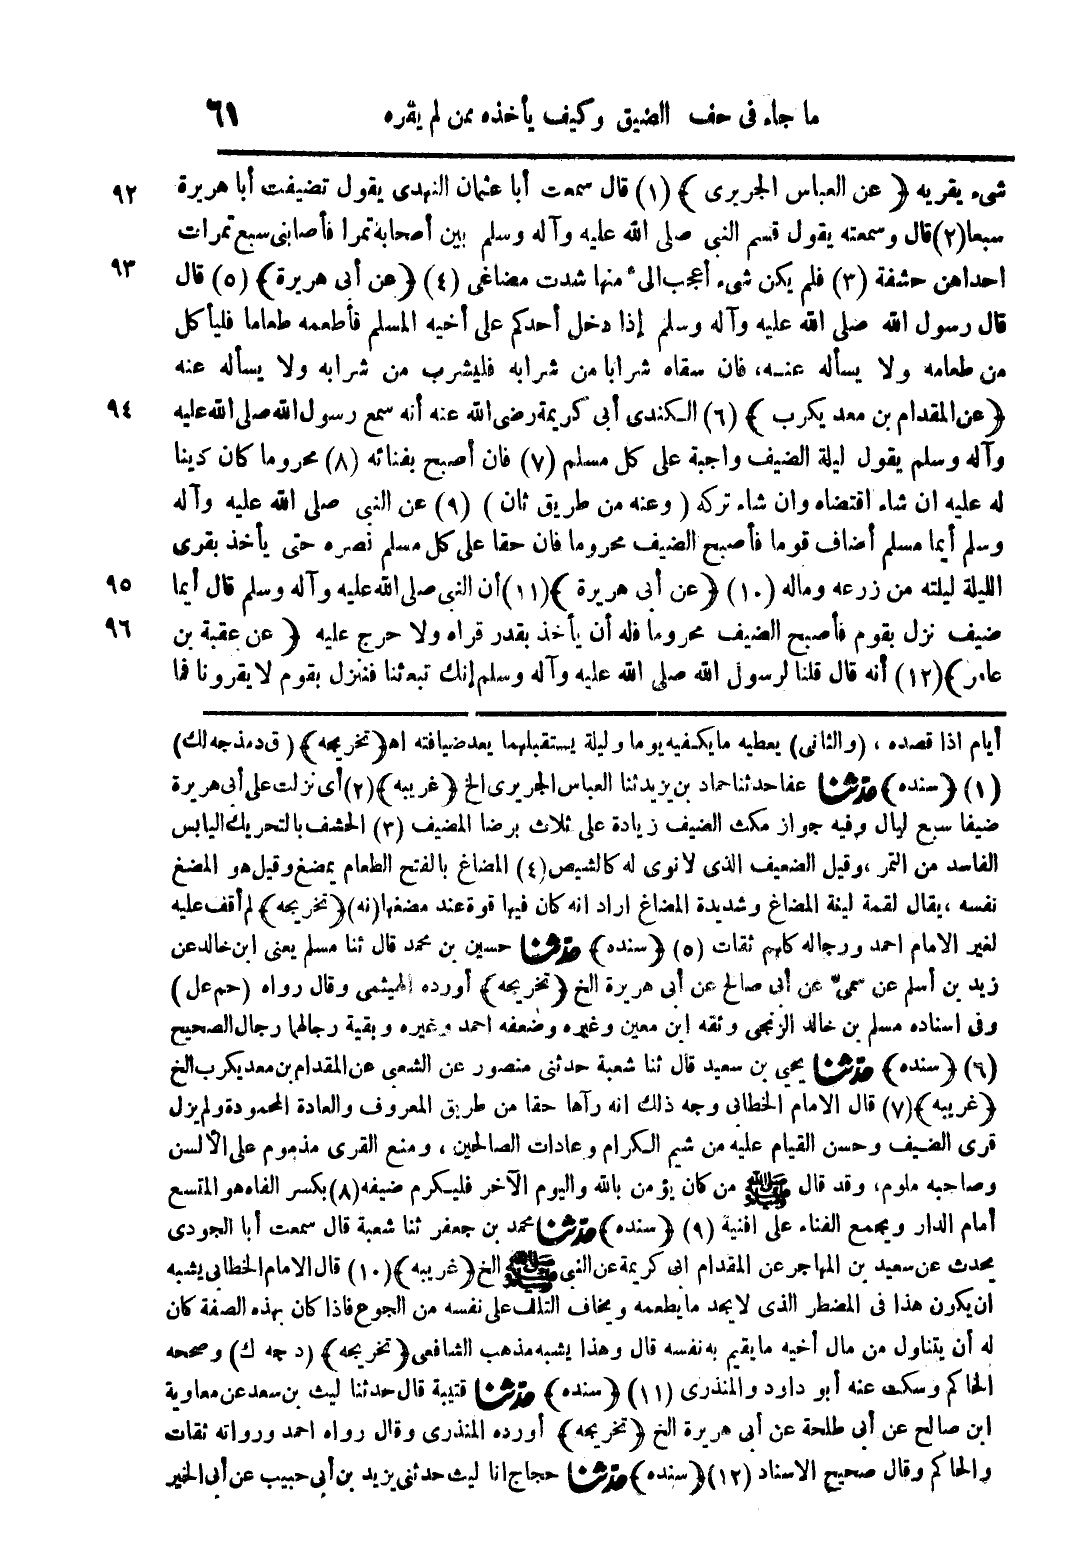 ما جاء فى حق الضيق وكيف يأخذه ممن لم يقره ٦١
شىء يقريه ﴿ عن العباس الجريرى ﴾ (١) قال سمعت أبا عثمان النهدى يقول تضيفت أبا هريرة ٩٢
سبعا (٢) قال وسمعته يقول قسم النبي صلى الله عليه وآله وسلم بين أصحابة تمرا فأصابنى سبع تمرات
احداهن حشفة (٣) فلم يكن شىء أعجب الىّ منها شدت مضاغى (٤) ﴿ عن أبى هريرة ﴾ (٥) قال ٩٣
قال رسول الله صلى الله عليه وآله وسلم إذا دخل أحدكم على أخيه المسلم فأطعمه طعاما فليأكل
من طعامه ولا يسأله عنه، فان سقاه شرابا من شرابه فليشرب من شرابه ولا يسأله عنه
﴿ عن المقدام بن معد يكرب ﴾ (٦) الكندى أبى كريمة رضى الله عنه أنه سمع رسول الله صلى الله عليه ٩٤
وآله وسلم يقول ليلة الضيف واجبة على كل مسلم (٧) فان أصبح بفنائه (٨) محروما كان دينا
له عليه ان شاء اقتضاه وان شاء تركه ( وعنه من طريق ثان ) (٩) عن النبي صلى الله عليه وآله
وسلم أيما مسلم أضاف قوما فأصبح الضيف محروما فان حقا على كل مسلم نصره حتى يأخذ بقرى
الليلة ليلته من زرعه وماله (١٠) ﴿ عن أبى هريرة ﴾ (١١) أن النبى صلى الله عليه وآله وسلم قال أيما ٩٥
ضيف نزل بقوم فأصبح الضيف محروما فله أن يأخذ بقدر قراه ولا حرج عليه ﴿ عن عقبة بن ٩٦
عامر ﴾ (١٢) أنه قال قلنا لرسول الله صلى الله عليه وآله وسلم إنك تبعثنا فننزل بقوم لا يقرونا فما
أيام اذا قصده ، (والثانى) يعطيه ما يكفيه يوما وليلة يستقبلهما بعد ضيافته اه ﴿ تخريجه ﴾ ( ق د مذ جه لك)
(١) ﴿ سنده ﴾ حدثنا عفا حدثنا حماد بن يزيد ثنا العباس الجريرى الخ ﴿ غريبه ﴾ (٢) أى نزلت على أبى هريرة
ضيفا سبع ليال وفيه جواز مكث الضيف زيادة على ثلاث برضا المضيف (٣) الحشف بالتحريك اليابس
الفاسد من التمر ،وقيل الضعيف الذى لا نوى له كالشيص (٤) المضاغ بالفتح الطعام يمضغ وقيل هو المضغ
نفسه ،يقال لقمة لينة المضاغ وشديدة المضاغ اراد انه كان فيها قوة عند مضغها (نه) ﴿ تخريجه ﴾ لم أقف عليه
لغير الامام احمد ورجاله كلهم ثقات (٥) ﴿ سنده ﴾ حدثنا حسين بن محمد قال ثنا مسلم يعنى ابن خالد عن
زيد بن أسلم عن سمىّ عن أبى صالح عن أبى هريرة الخ ﴿ تخريجه ﴾ أورده الهيثمى وقال رواه (حم عل)
وفى اسناده مسلم بن خالد الزنجى وثقه ابن معين وغيره وضعفه احمد وغيره وبقية رجالها رجال الصحيح
(٦) ﴿ سنده ﴾ حدثنا يحيى بن سعيد قال ثنا شعبة حدثنى منصور عن الشعبى عن المقدام بن معد يكرب الخ
﴿ غريبه ﴾ (٧) قال الامام الخطابى وجه ذلك انه رآها حقا من طريق المعروف والعادة المحمودة ولم يزل
قرى الضيف وحسن القيام عليه من شيم الكرام وعادات الصالحين ، ومنع القرى مذموم على الألسن
وصاحبه ملوم، وقد قال ﷺ من كان يؤمن بالله واليوم الآخر فليكرم ضيفه (٨) بكسر الفاء هو المتسع
أمام الدار ويجمع الفناء على افنية (٩) ﴿ سنده ﴾ حدثنا محمد بن جعفر ثنا شعبة قال سمعت أبا الجودى
يحدث عن سعيد بن المهاجر عن المقدام ابى كريمة عن النبى ﷺ الخ ﴿ غريبه ﴾ (١٠) قال الامام الخطابى يشبه
ان يكون هذا فى المضطر الذى لا يجد ما يطعمه ويخاف التلف على نفسه من الجوع فاذا كان بهذه الصفة كان
له أن يتناول من مال أخيه ما يقيم به نفسه قال وهذا يشبه مذهب الشافعى ﴿ تخريجه ﴾ (د جه ك) وصححه
الحاكم وسكت عنه أبو داود والمنذرى (١١) ﴿ سنده ﴾ حدثنا قتيبة قال حدثنا ليث بن سعد عن معاوية
ابن صالح عن أبى طلحة عن أبى هريرة الخ ﴿ تخريجه ﴾ أورده المنذرى وقال رواه احمد ورواته ثقات
والحاكم وقال صحيح الاسناد (١٢) ﴿ سنده ﴾ حدثنا حجاج انا ليث حدثنى يزيد بن أبى حبيب عن أبى الخير